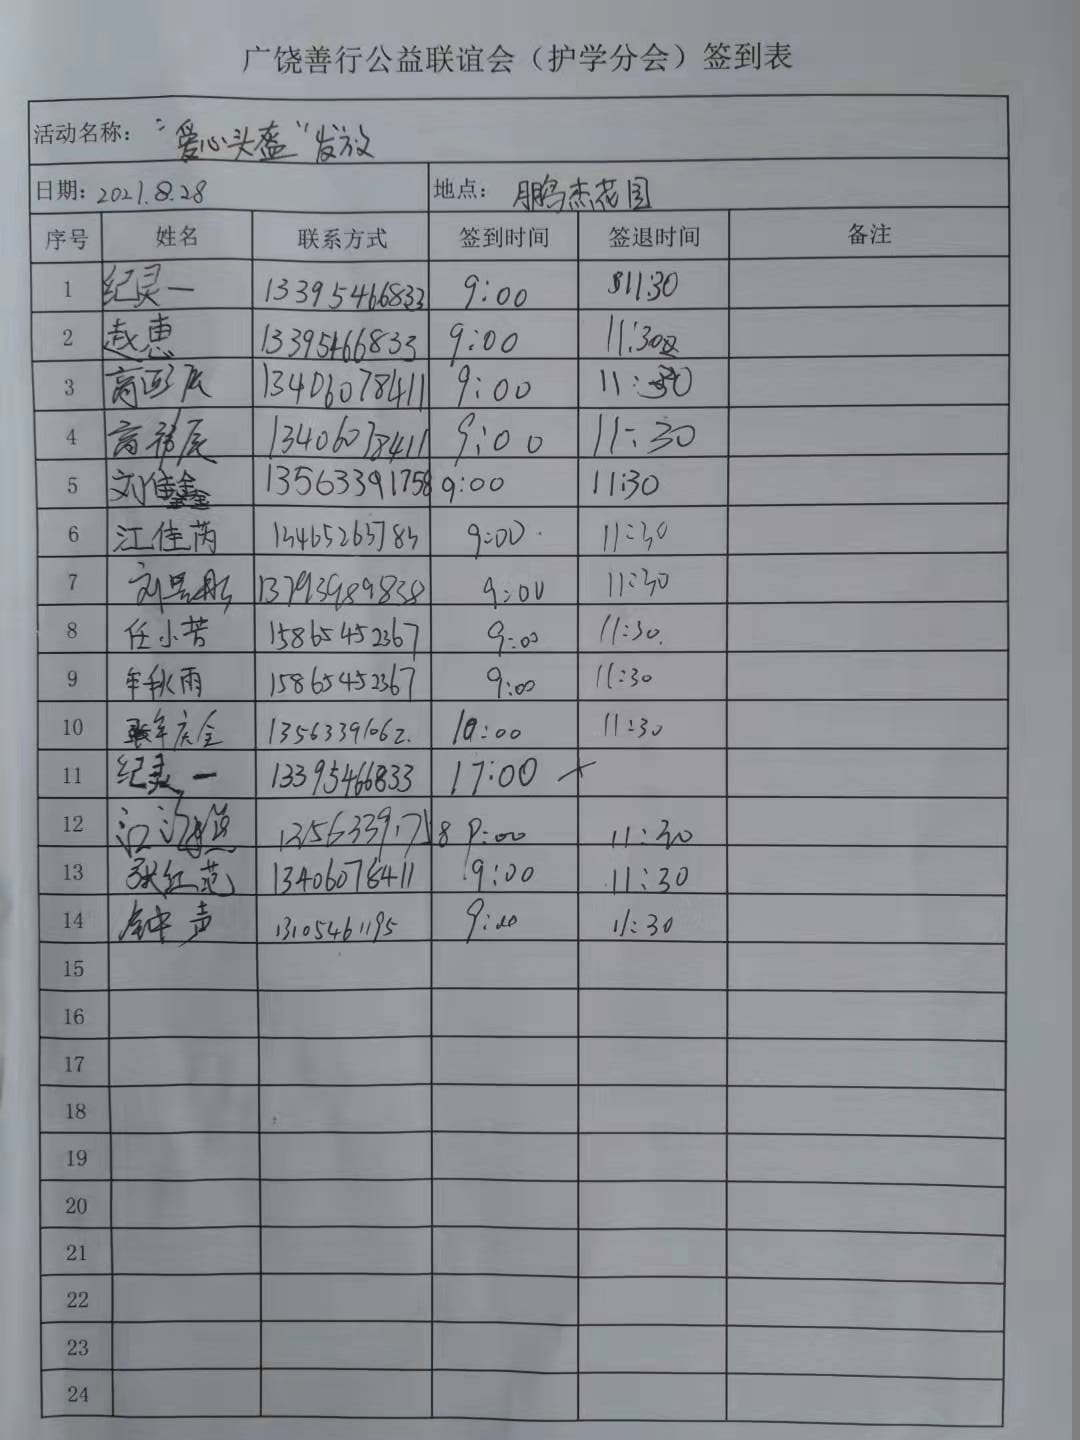 广饶善行公益联谊会（护学分会）签到表
活动名称： “爱心头盔”发放
日期: 2021.8.28 地点： 鹏杰花园
序号 姓名 联系方式 签到时间 签退时间 备注
1 纪灵一 13395466833 9:00 11:30
2 赵惠 13395466833 9:00 11:30
3 13406078411 9:00 11:30
4 13406078411 9:00 11:30
5 刘佳鑫 13563391758 9:00 11:30
6 江佳芮 13465263783 9:00 11:30
7 13793989838 9:00 11:30
8 任小芳 15865452367 9:00 11:30
9 牟秋雨 15865452367 9:00 11:30
10 牟庆全 13563391062 10:00 11:30
11 纪灵一 13395466833 17:00
12 9:00 11:30
13 张红范 13406078411 9:00 11:30
14 钟声 13105461195 9:00 11:30
15
16
17
18
19
20
21
22
23
24